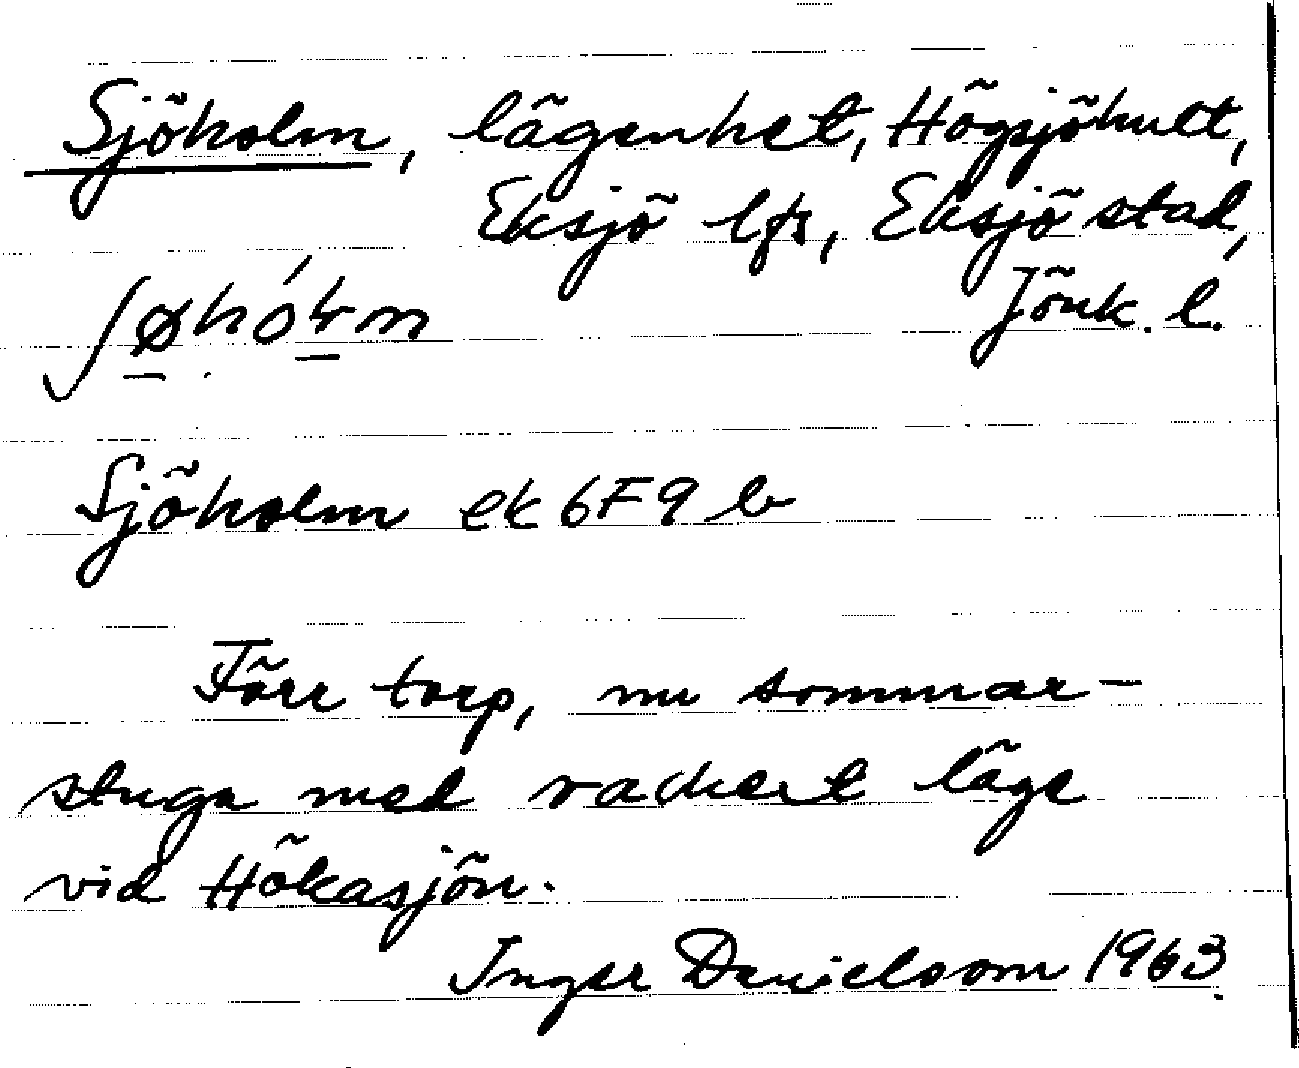 Sjöholm, lägenhet, Högsjöhult,
Eksjö lfs, Eksjö stad,
Jönk. l.
Sjöholm ek 6F9b
Förr torp, nu sommar-
stuga med vackert läge
vid Hökasjön.
Inger Danielsson 1963.